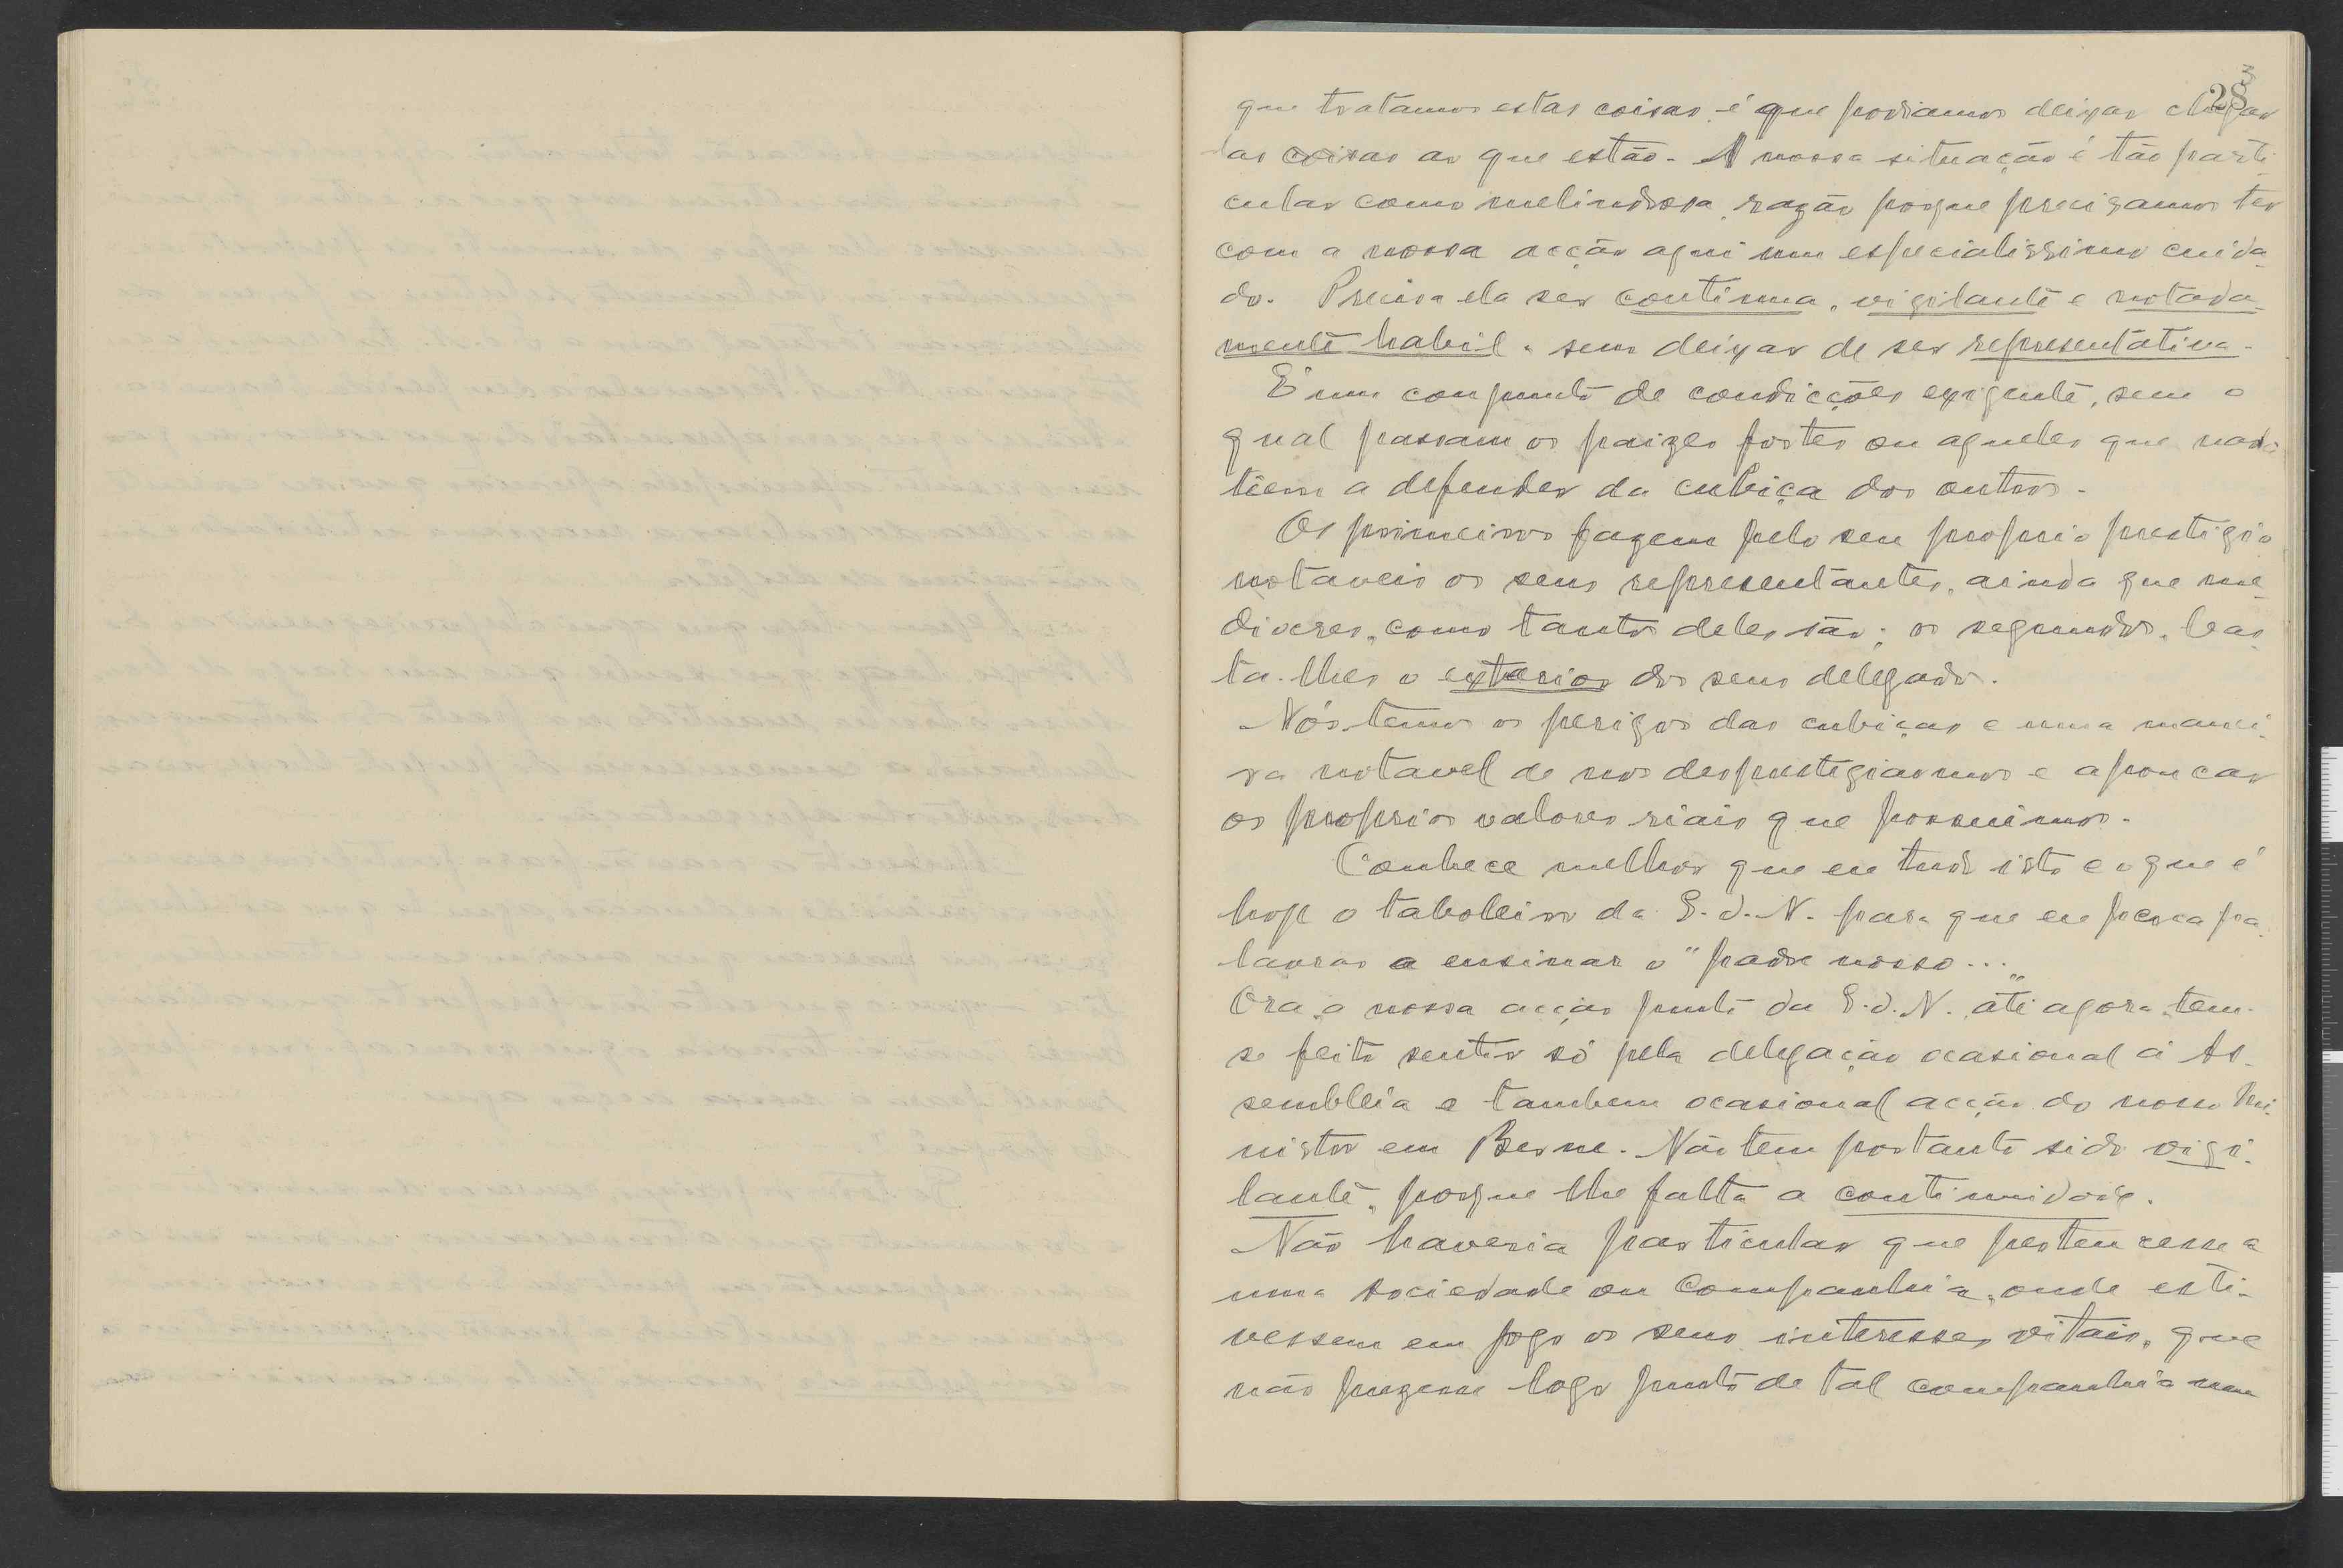 28
3
que tratamos estas coisas é que podiamos deixar chegar
as coisas ao que estão. A nossa situação é tão parti-
cular como melindrosa, razão porque precisamos ter
com a nossa acção aqui um especialissimo cuida-
do. Precisa ela ser continua, vigilante e notada-
mente habil, sem deixar de ser representativa.
É um conjunto de condicções exigente, sem o
qual passam os paizes fortes ou aqueles que nada
têem a defender da cubiça dos outros.
Os primeiros fazem pelo seu proprio prestigio
notaveis os seus representantes, ainda que me-
diocres, como tantos deles são; os segundos, bas-
ta-lhes o exterior dos seus delegados.
Nós temos os perigos das cubiças e uma manei-
ra notavel de nos desprestigiarmos e apoucar
os proprios valores riais que possuimos.
Conhece melhor que eu tudo isto e o que é
hoje o taboleiro da S.d.N. para que eu perca pa-
lavras a ensinar o "padre nosso..."
Ora, a nossa acção junto da S.d.N. até agora, tem-
se feito sentir só pela delegação ocasional á As-
sembleia e tambem ocasional acção do nosso Mi-
nistro em Berne. Não tem portanto sido vigi-
lante, porque lhe falta a continuidade.
Não haveria particular que pertencesse a
uma sociedade ou Companhia, onde esti-
vessem em jogo os seus interesses vitais, que
não puzesse logo junto de tal companhia um